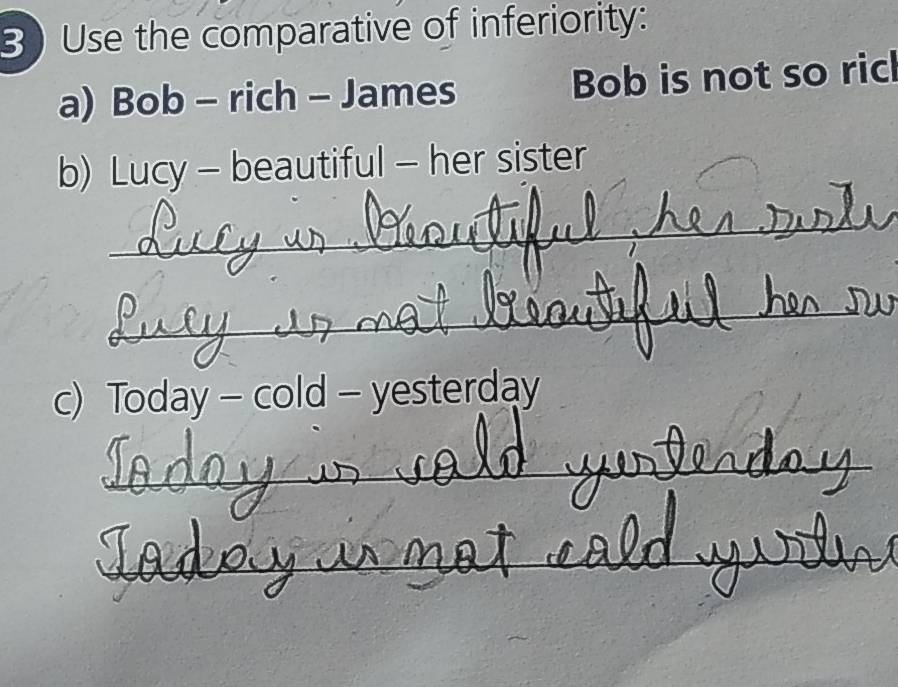 3 Use the comparative of inferiority:
a) Bob – rich – James Bob is not so rich
b) Lucy – beautiful – her sister
Lucy is beautiful her sister
Lucy is not beautiful her
c) Today – cold – yesterday
Today is cold yesterday
Today is not cold